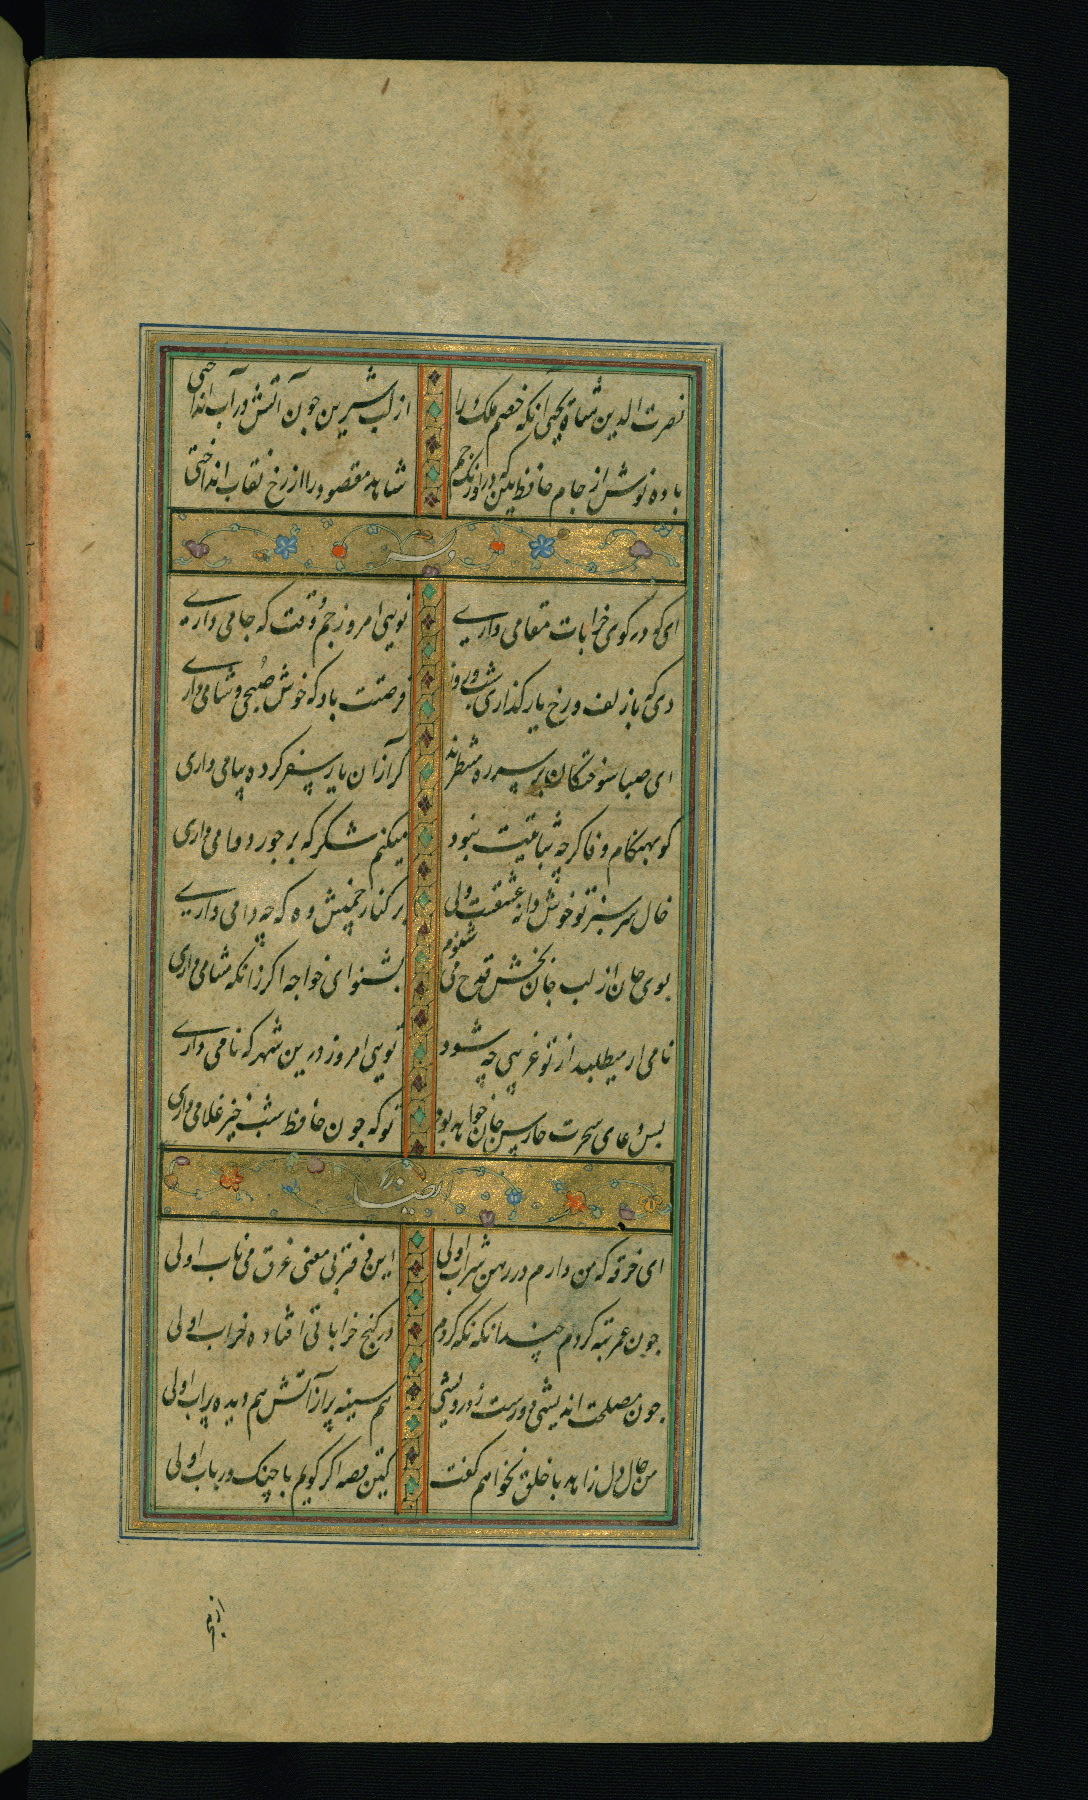 نصرت الدین شاه یحیی آنکه خصم ملک را
از لب شیرین چون آتش در آب انداختی
باده نوش از جام حافظ بین که در اورنگ جم
شاهد مقصود را از رخ نقاب انداختی
وله
ای که در کوی خرابات مقامی داری
تویی امروز جم وقت که جامی داری
وی که با زلف و رخ یار گذاری شب و روز
فرصتت باد که خوش صبحی و شامی داری
ای صبا سوختگان بر سر ره منتظرند
گر از آن یار سفر کرده پیامی داری
کو بهنگام وفا گرچه ثباتیت نبود
میکنم شکر که بر جور دوامی داری
خال سرسبز تو خوش دانه عشقست ولی
بر کنار چمنش وه که چه دامی داری
بوی جان از لب جان بخش قدح می شنوم
بشنو ای خواجه اگر زانکه مشامی داری
نامی ار میطلبد از تو غریبی چه شود
تویی امروز درین شهر که نامی داری
بس دعای سحرت حارس جان خواهد بود
تو که چون حافظ شب خیز غلامی داری
ایضا
ای خرقه که من دارم در رهن شراب اولی
این دفتر بی معنی غرق می ناب اولی
چون عمر تبه کردم چندانکه نگه کردم
در کنج خراباتی افتاده خراب اولی
چون مصلحت اندیشی دورست ز درویشی
هم سینه پر از آتش هم دیده پر آب اولی
من حال دل زاهد با خلق نخواهم گفت
کین قصه اگر گویم با چنگ و رباب اولی